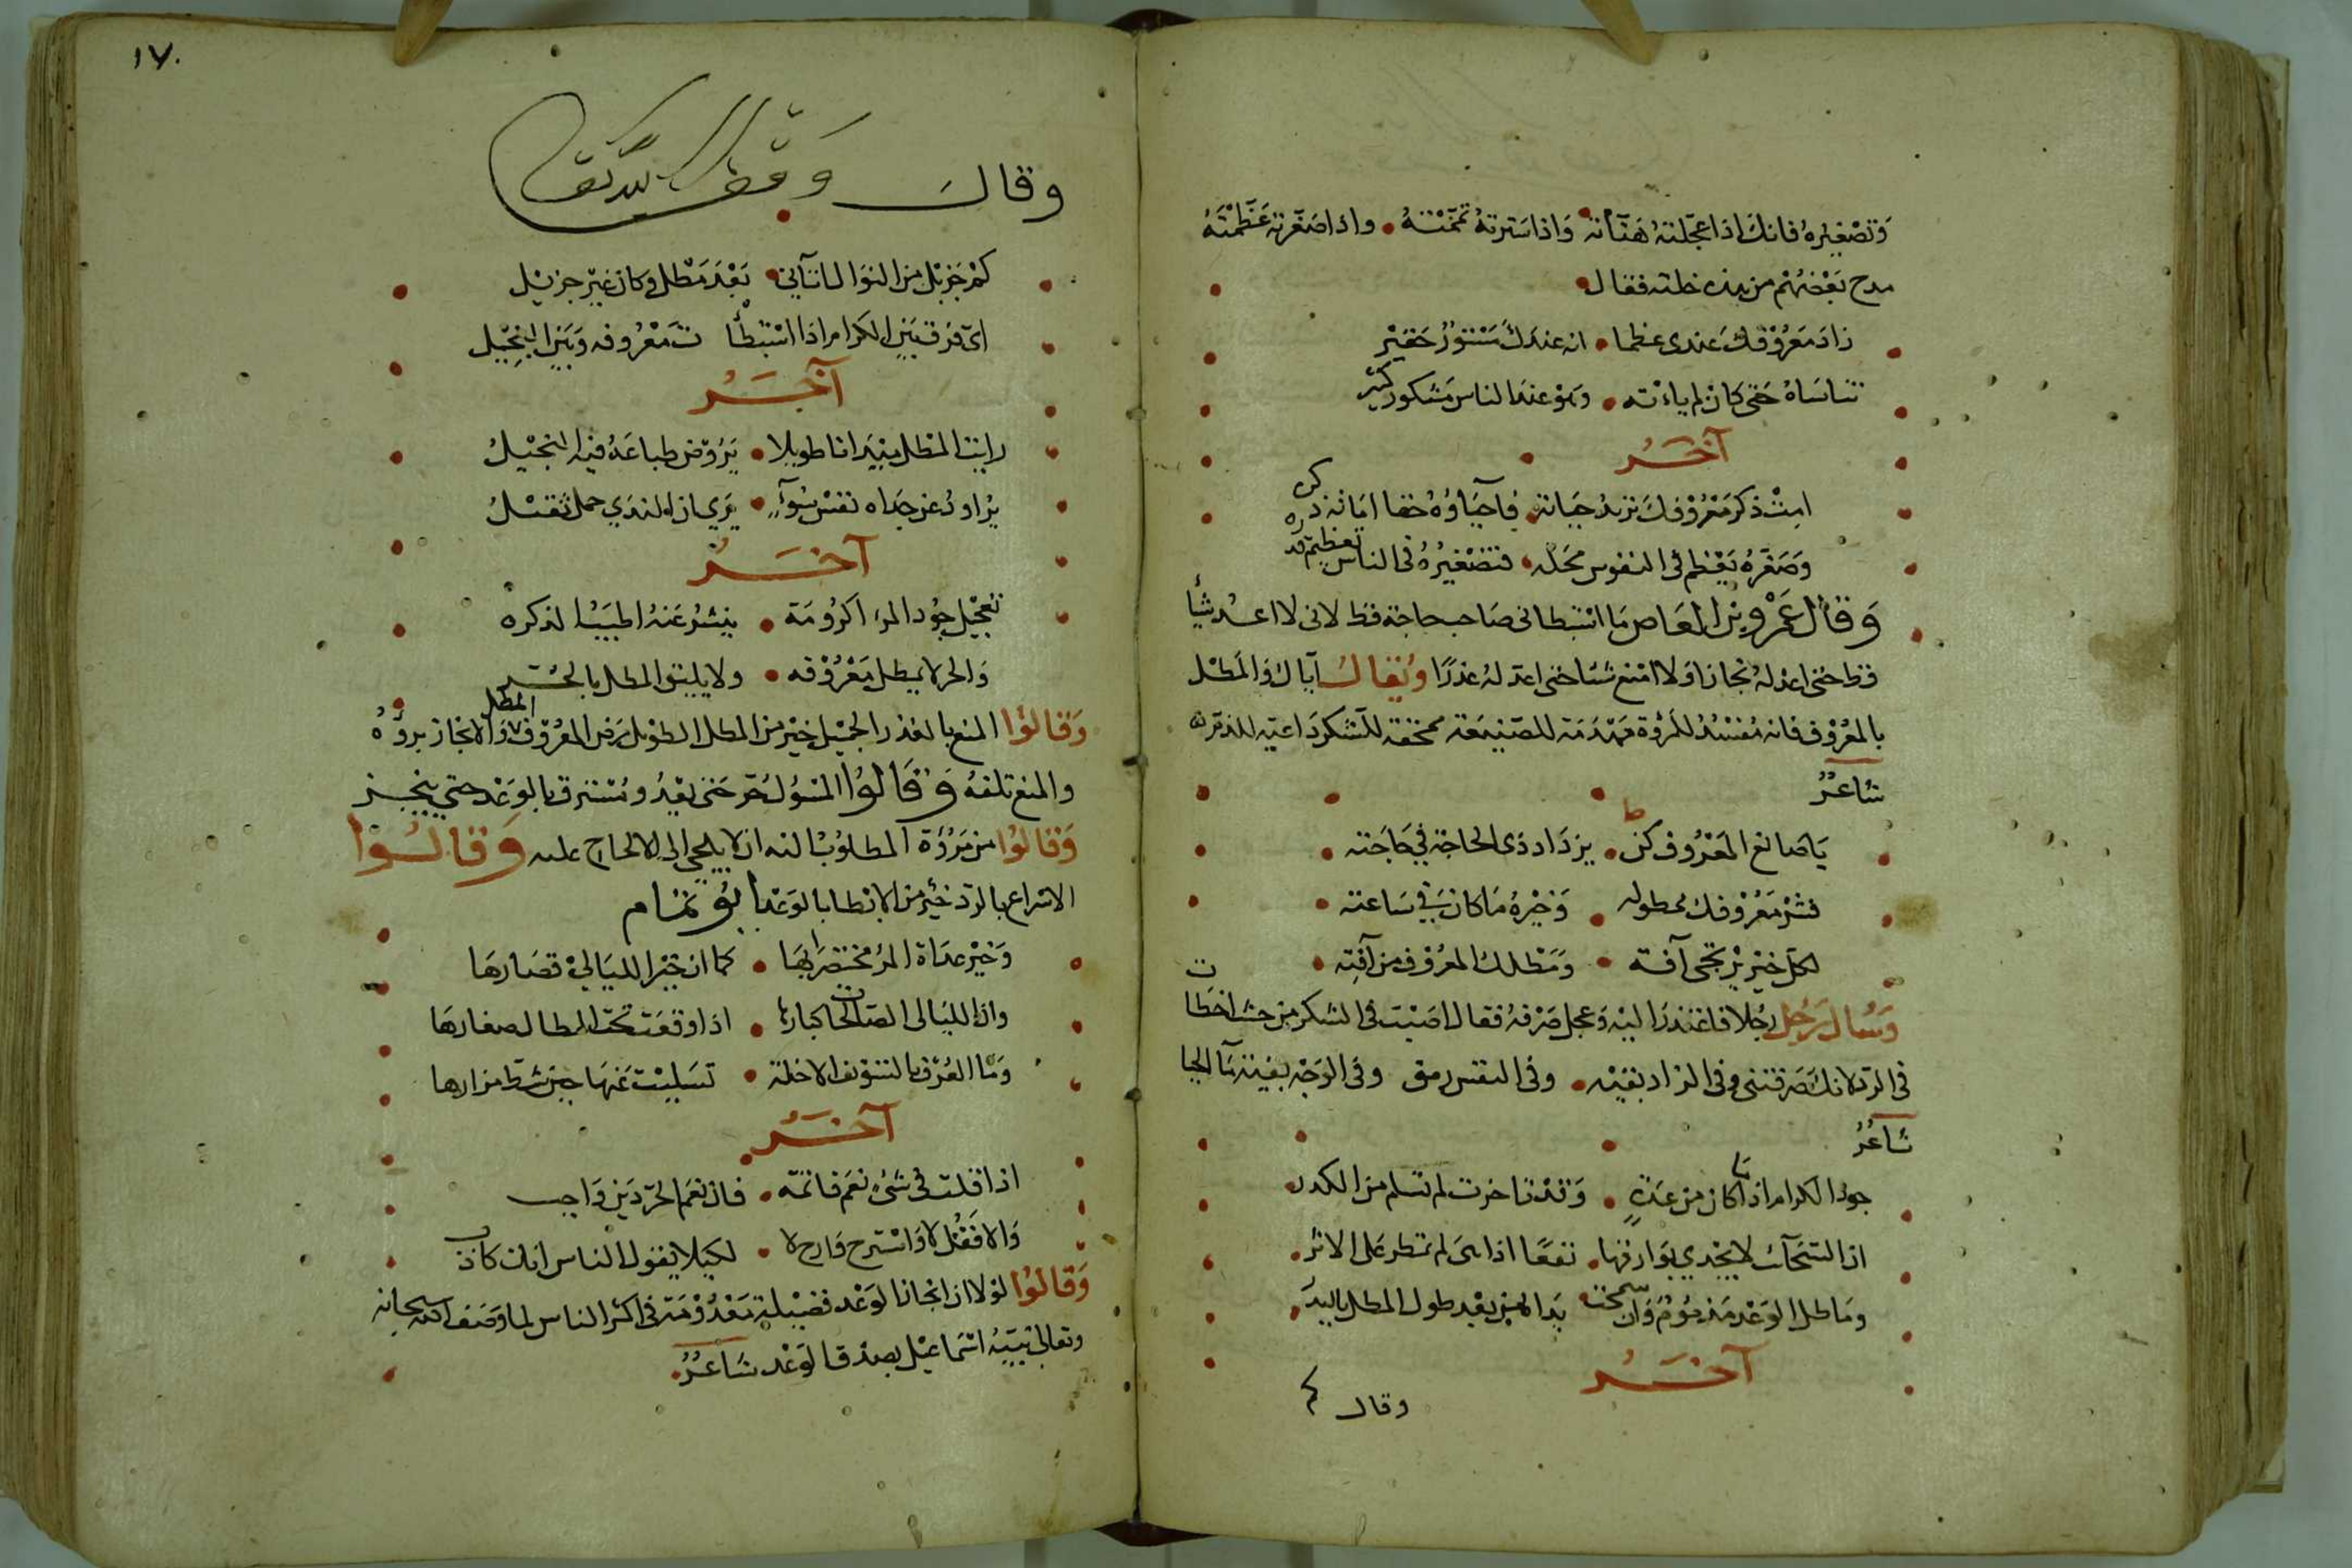 وَتصْغيرهُ فانكَ اذا عجّلتهُ هَنّأته وَاذا سَترتهُ تمّمْتهُ واذا صَغّرته عَظّمْتَهُ
مدح بَعْضهُم من هذه خلته فقال
زادَ مَعرُوْفكَ عندى عظما انه عندكَ مَسْتورٌ حَقيْر
تتناسَاهُ حَتى كان لم يأته وَهوْ عندَ الناس مَشكور كثير
آخَرُ
امِتْ ذكرَ مَعْرُوْفكَ تريدُ حَياته فاحيَاؤهُ حقا امَاتة ذكره
وَصَغّرهُ يَعْظم فى النفوس محَله فتصْغيْرُهُ فى الناس تعظيم قدره
وَقالَ عَمْرو بن العَاص مَا اسْتبطانى صَاحب حاجة قط لانى لا اعدُ شيأ
قط حتى اعد لهُ نجازا وَلا امْنع شيئا حتى اعد لهُ عذرًا وَيُقالُ اياك وَالمَطْل
بالمعْرُوْف فانه مُفسْدٌ للمرُوْة مَهْدَمَة للصّنيعَة ممحَقة للشكر دَاعيَة للذمّ
شاعرٌ
يَا صَانع المَعْرُوف كن يزدَاد ذى الحاجة فى حَاجَته
فشر مَعْرُوْفك ممطوله وَخيْرهُ مَا كانَ فى سَاعته
لكل خيْر يرْتجى آفة وَمَطْلكَ المعْرُوْف من آفته
وَسُالَ رَجُل رَجُلا فاعْتذرَ اليْه وَعجل صَرْفهُ فقال اصَبْت فى الشكر من حيث اخطات
فى الرد لانك صَرفتنى وفى الزاد بقيّة وفى النفس رمق وفى الوَجْه بقيّة مآ الحيا
شاعرٌ
جودُ الكرام اذا ما كان من عدَةٍ وَقدْ تاخرت لم تسلم من الكدر
ان السّحَآئب لا تجْدي بوَارقها نفعًا اذا هىَ لم تمطر على الاثر
وَمَاطل الوَعْد مَذمُوْمٌ وَان سمحت يَداه من بعْد طول المطل بالبدَر
آخَرُ
وقال
١٧٠
وقالَ
كمْ جَزيْل من النوَال اتانى بَعْدَ مَطْل وَكانَ غيْر جزيْل
اىّ فرَق بَيْن الكرام اذا اسْتبْطأ ت مَعْرُوفه وَبَيْن البَخيْل
آخَرُ
رايت المطل ميْدانا طويلا يَرُوّض طباعَهُ فيْه البَخيْلُ
يُراودُ عن جدَاه نفسَ سُوْءٍ يَرى ان الندَي حمل ثقيْلُ
آخَرُ
تعجيْل جُود المرء اكرُومَة ينشرُ عَنهُ اطيَبُ الذكره
وَالحر لا يمطل مَعْرُوْفه ولا يليق المطل بالحر
وَقالوُا المنع بالعذر الجميْل خيْر من المطل الطويْل مَرَض المعْرُوْف المطل وَالانجَاز برؤُهُ
والمنع تلفهُ وَقالوُا المسْؤل حُرّ حَتى يَعْدُ وَمُسْترق بالوَعْد حتى ينجز
وَقالوُا من مَرُوْة المطلوُب اليه ان لا يلجى الى الالحاح عليه وَقالُوا
الاسْراع بالردّ خيْر من الابْطا بالوَعْد ابُو تمَام
وَخيْر عدَاة المرْ مختصَراتهَا كما ان خيْر الليَالى قصَارهَا
وان الليَالى الصّالحات كبارها اذا وَقعَت تحْت المطال صغارهَا
وَمَا العُرْف بالتسْوِيْف الا خلة تسَليْت عَنهَا حيْن شط مزارها
آخَرُ
اذا قلت فى شىءٍ نعَم فاتمّه فان نعَم الحرّ دَيْن وَاجب
وَالا فَقُلْ لا وَاسْترح وَارح لا لكيلا يقول الناس انك كاذب
وَقالوُا لوْلا ان انجاز الوَعْد فضيْلة مَعْدُوْمَة فى اكثر الناس لما وَصَف الله سبحانه
وتعالى نبيّه اسْمَاعيْل بصدْق الوَعْد شاعرٌ